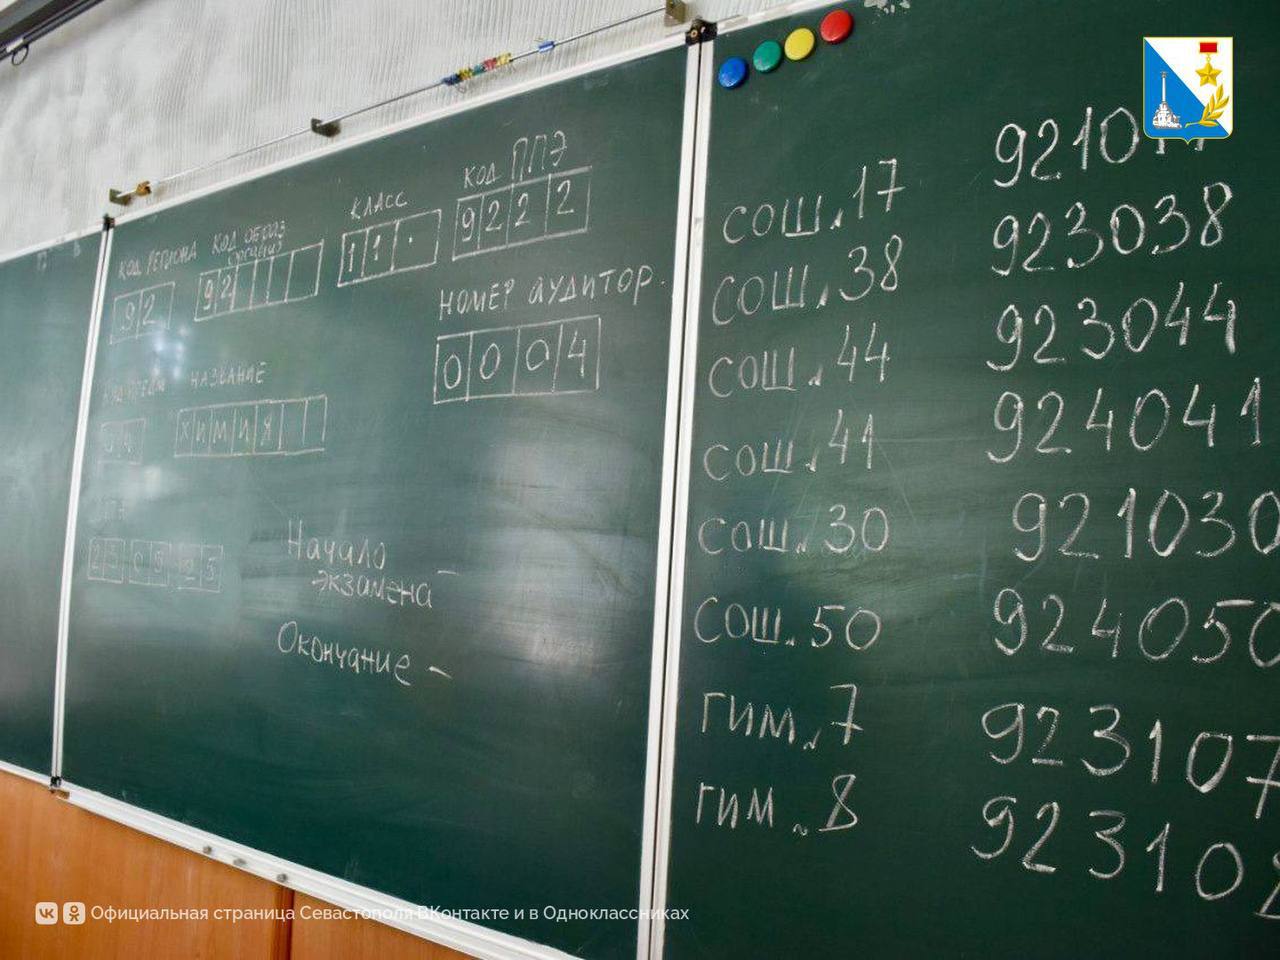 код региона код образ организ класс код ППЭ
92 92 11. 9222
номер аудитор.
0004
название
химия
23 05 25
Начало
экзамена –
Окончание –
сош.17 92101
сош.38 923038
сош.44 923044
сош.41 924041
сош.30 921030
сош.50 924050
гим.7 923107
гим.8 92310
Официальная страница Севастополя ВКонтакте и в Одноклассниках